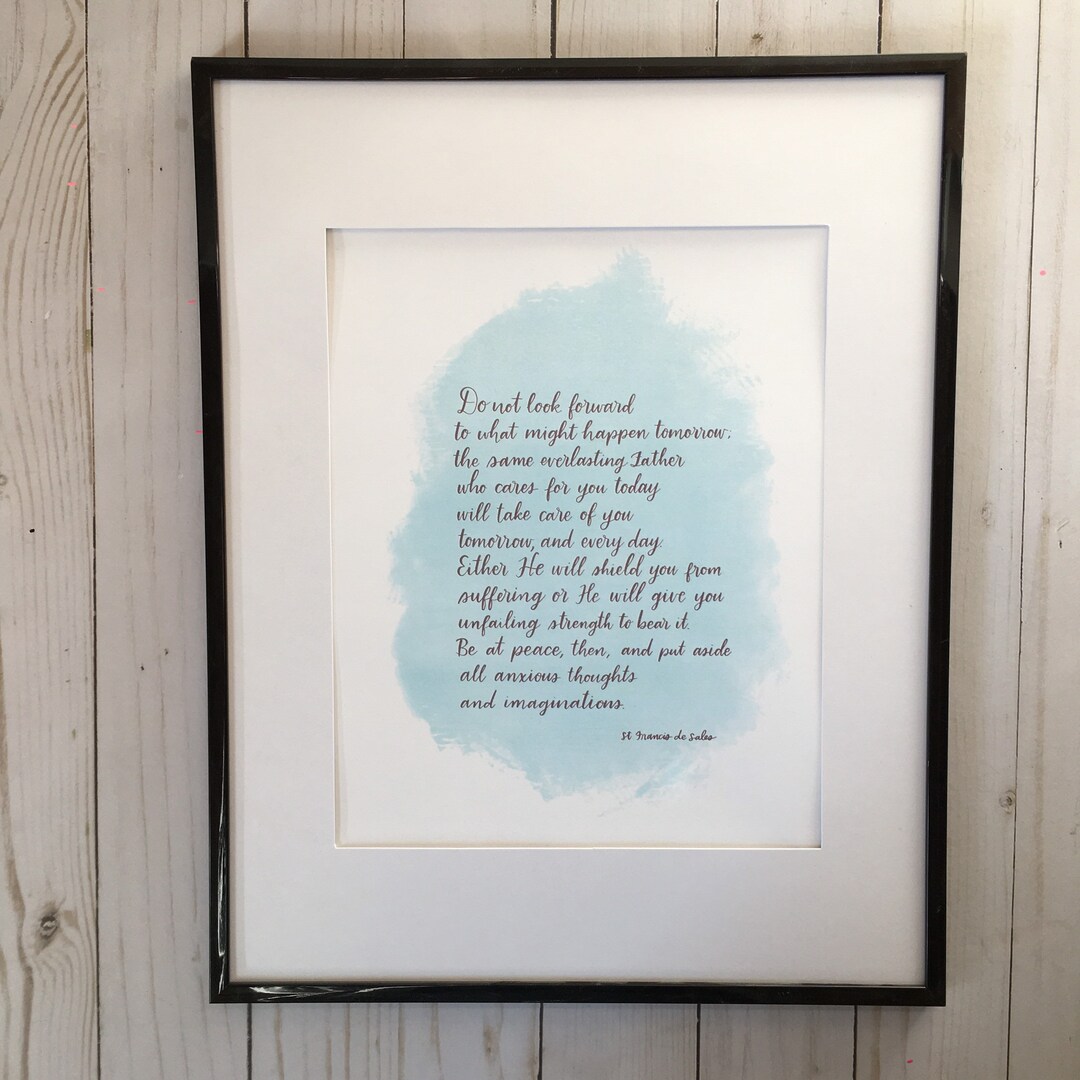 Do not look forward
to what might happen tomorrow;
the same everlasting Father
who cares for you today
will take care of you
tomorrow, and every day.
Either He will shield you from
suffering or He will give you
unfailing strength to bear it.
Be at peace, then, and put aside
all anxious thoughts
and imaginations.
St Francis de Sales